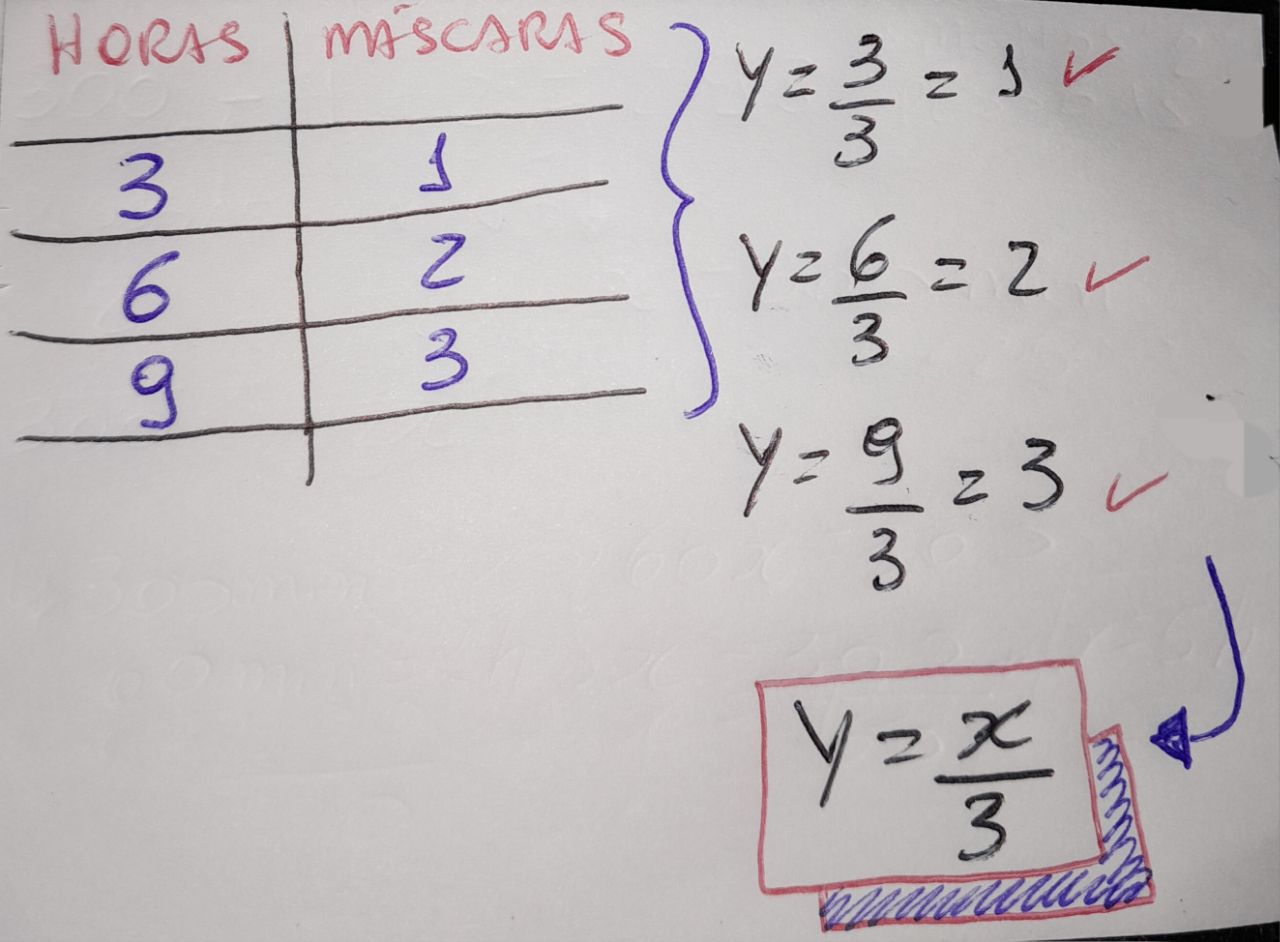 HORAS MÁSCARAS
3 1
6 2
9 3
y = 3/3 = 1 ✓
y = 6/3 = 2 ✓
y = 9/3 = 3 ✓
y = x/3